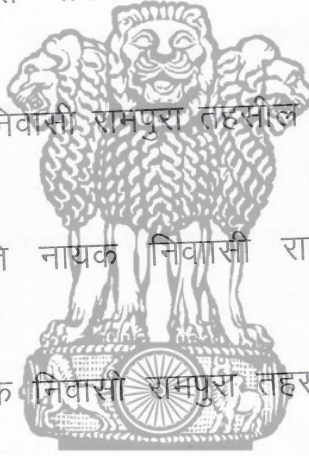 निवासी रामपुरा तहसील
नायक निवाासी रा
निवासी रामपुरा तहस